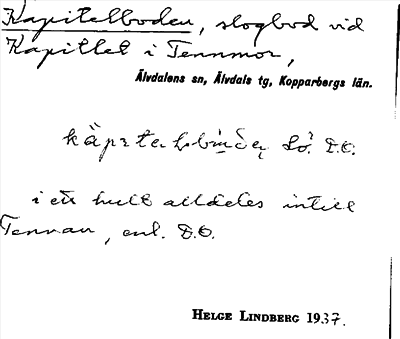 Kapitelboden, slogbod vid
Kapitlet i Tennmor,
Älvdalens sn, Älvdals tg, Kopparbergs län.
i ett hult alldeles intill
Tennan, enl. D.O.
HELGE LINDBERG 1937.